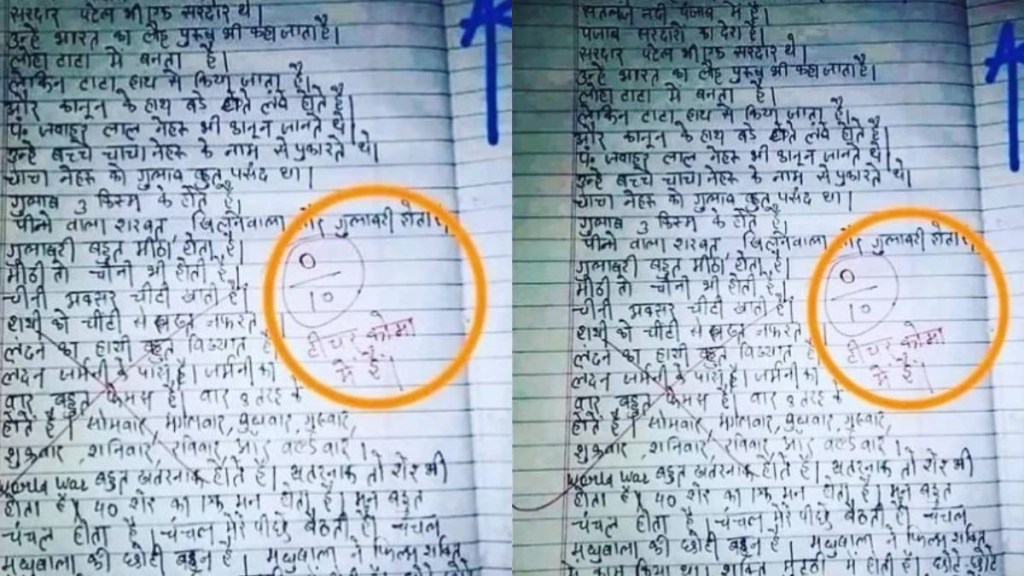 सरदार पटेल भी एक सरदार थे।
उन्हे भारत का लौह पुरुष भी कहा जाता है।
लोहा टाटा मे बनता है।
लेकिन टाटा हाथ से किया जाता है।
और कानून के हाथ बडे लंबे होते है।
पं. जवाहर लाल नेहरू भी कानून जानते थे।
उन्हे बच्चे चाचा नेहरू के नाम से पुकारते थे।
चाचा नेहरू को गुलाब बहुत पसंद था।
गुलाब 3 किस्म के होते है।
पीने वाला शरबत, खिलनेवाला और गुलाबरी होता
गुलाबरी बहुत मीठी होती है।
मीठी तो चीनी भी होती है।
चीनी अक्सर चीटी खाती है।
हाथी को चीटी से सख्त नफरत
लंदन का हाथी बहुत विख्यात है
लंदन जर्मनी के पास है। जर्मनी का
वार बहुत फेमस है। वार 8 तरह के
होते है। सोमवार, मंगलवार, बुधवार, गुरुवार,
शुक्रवार, शनिवार, रविवार और वर्ल्डवार।
World War बहुत खतरनाक होते है। खतरनाक तो शेर भी
होता है। 40 शेर का एक मन होता है। मन बहुत
चंचल होता है। चंचल मेरे पीछे बैठती है। चंचल
मधुबाला की छोटी बहन है। मधुबाला ने फिल्म शक्ति
0
10
टीचर कोमा
में है।
सतलज नदी पंजाब में है।
पंजाब सरदारो का देश है।
सरदार पटेल भी एक सरदार थे।
उन्हे भारत का लौह पुरुष भी कहा जाता है।
लोहा टाटा मे बनता है।
लेकिन टाटा हाथ से किया जाता है।
और कानून के हाथ बडे लंबे होते है।
पं. जवाहर लाल नेहरू भी कानून जानते थे।
उन्हे बच्चे चाचा नेहरू के नाम से पुकारते थे।
चाचा नेहरू को गुलाब बहुत पसंद था।
गुलाब 3 किस्म के होते है।
पीने वाला शरबत, खिलनेवाला और गुलाबरी होता
गुलाबरी बहुत मीठी होती है।
मीठी तो चीनी भी होती है।
चीनी अक्सर चीटी खाती है।
हाथी को चीटी से सख्त नफरत
लंदन का हाथी बहुत विख्यात है
लंदन जर्मनी के पास है। जर्मनी का
वार बहुत फेमस है। वार 8 तरह के
होते है। सोमवार, मंगलवार, बुधवार, गुरुवार,
शुक्रवार, शनिवार, रविवार और वर्ल्डवार।
World War बहुत खतरनाक होते है। खतरनाक तो शेर भी
होता है। 40 शेर का एक मन होता है। मन बहुत
चंचल होता है। चंचल मेरे पीछे बैठती है। चंचल
मधुबाला की छोटी बहन है। मधुबाला ने फिल्म शक्ति
मे काम किया था। शक्ति मुट्ठी में होती है। छोटे छोटे
0
10
टीचर कोमा
में है।